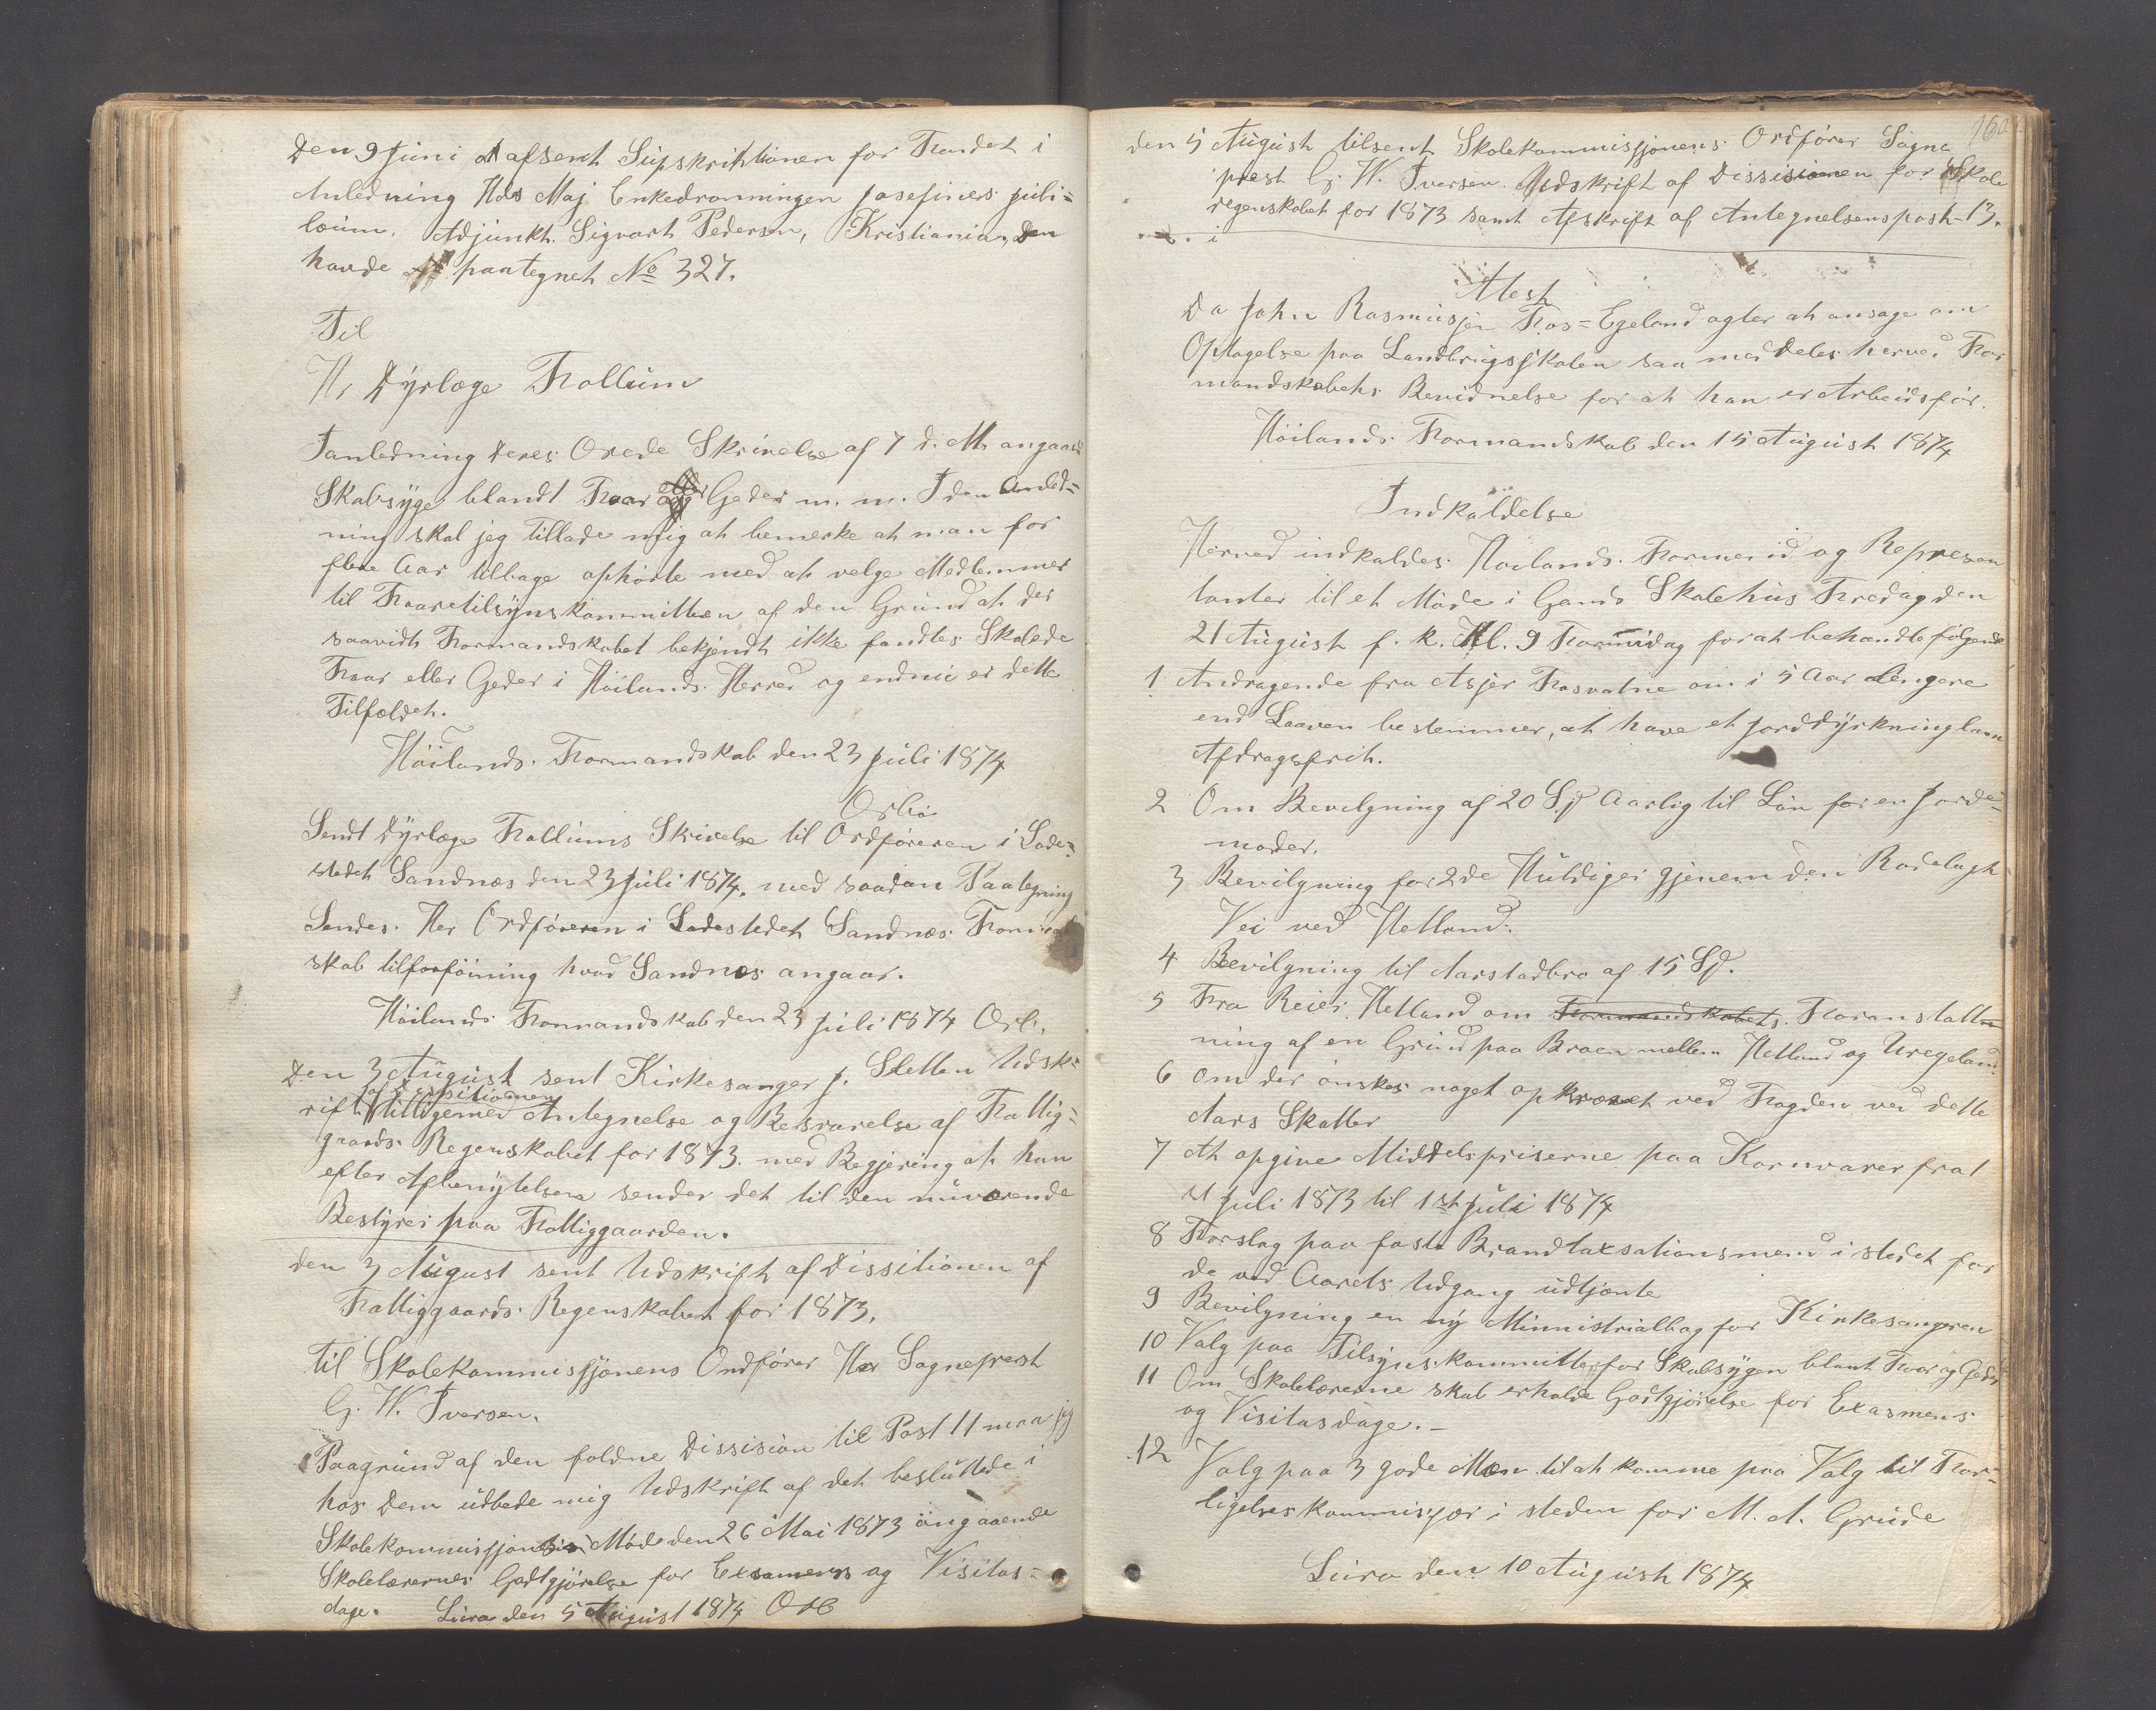 Den 9 Juni afsent Supskriktionen for Fondet i
Anledning Hds Maj Enkedronningen Josefines jubi=
læum. Adjunkt. Sigvart Pedersen, Kristiania, den
havde paategnet No 327.
Til
Hr Dyrlæge Follum
Ianledning Deres Ørede Skrivelse af 7 d. M. angaaend
Skabsyge blandt Faar eller Geder m. m. I den Anled=
ning skal jeg tillade mig at bemerke at man for
flere Aar tilbage ophörte med at velge Medlemmer
til Faaretilsynskommitteen af den Grund at der
saavidt Formandskabet bekjendt ikke fandtes Skabede
Faar eller Geder i Höilands Herred og endnu er dette
Tilfældet.
Höilands Formandskab den 23 Juli 1874
Sendt Dyrlæge Follums Skrivelse til Ordföreren i Lade=
stedet Sandnæs den 23 Juli 1874. med saadan Paategning
Sendes Her Ordföreren i Ladestedet Sandnæs Formand
skab tilforföining hvad Sandnæs angaar.
Höilands Formandskab den 23 Juli 1874
Den 3 August sent Kirkesanger J. Sletten Udsk=
rift af Dissitionen tilligemed Antegnelse og Besvarelse af Fattig=
gaards Regenskabet for 1873. med Begjering at han
efter Afbenyttelsen sender det til den nuværende
Bestyrer paa Fattiggaarden.
den 3 August sent Udskrift af Dissitionen af
Fattiggaards Regenskabet for 1873.
Til Skolekommissjonens Ordförer Her Sogneprest
G. W. Iversen.
Paagrund af den faldne Dissision til Post 11 maa jeg
hos Dem udbede mig Udskrift af det besluttede i
Skolekommissjonens Möde den 26 Mai 1873 angaaende
Skolelærernes Godtgjörelse for Examens og Visitas=
dage. Lura den 5 August 1874
160
den 5 August tilsent Skolekommissjonens Ordförer Sogne
prest G. W. Iversen. Udskrift af Dissisionen for Skole
regenskabet for 1873 samt Afskrift af Antegnelsens post 13.
Atest
Da John Rasmussen Fos=Egeland agter at ansøge om
Optagelse paa Landbrugsskolen saa meddeles herved For
mandskabets Bevidnelse for at han er Arbeidsfør.
Höilands Formandskab den 15 August 1874
Indkaldelse
Herved indkaldes Höilands Formend og Represen
tanter til et Möde i Gands Skolehus Fredag den
21 August f. k. Kl. 9 Formidag forat behandle fölgende
1 Andragende fra Asjer Fosvatne om i 5 Aar lengere
end Loaven bestemmer, at have et Jorddyrkninglaan
Afdragsfrit.
2 Om Bevilgning af 20 Spd Aarlig til Lön for en Jorde=
moder.
3 Bevilgning for 2de Huldiger gjenem den Rodelagt
Vei ved Hetland.
4 Bevilgning til Aarstadbro af 15 Spd.
5 Fra Reier Hetland om Formandskabets Foranstalt
ning af en Grind paa Broen mellem Hetland og Uregeland
6 om der önskes noget opkrævet ved Fogden ved dette
Aars Skatter
7 At opgive Middelspriserne paa Kornvarer fra 1
st Juli 1873 til 1st Juli 1874
8 Forslag paa faste Brandtaxsationsmend i stedet for
de ved Aarets Udgang udtjente
9 Bevilgning en ny Ministrialbog for Kirkesangeren
10 Valg paa Tilsynskommitte for Skabsygen blant Faar og Geder
11 Om Skolelærerne skal erholde Godtgjörelse for Exasmens
og Visitasdage. –
12 Valg paa 3 gode Mæn til at komme paa Valg til For=
ligelseskommissær i steden for M. A. Grude
Lura den 10 August 1874